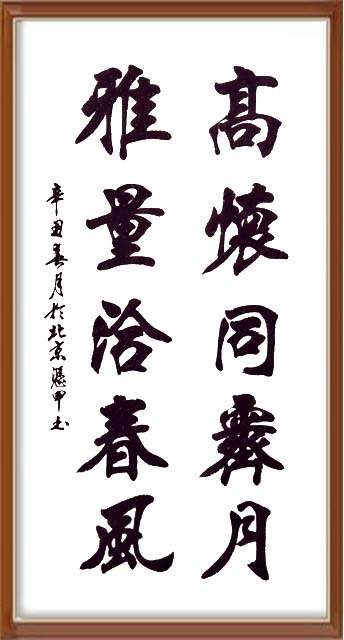 高懷同霽月
雅量洽春風
辛丑春月於北京遜甲書